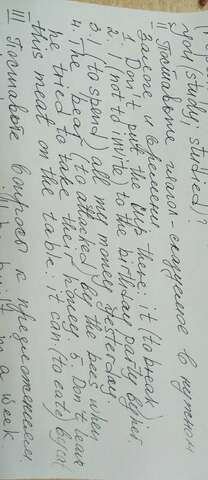 you (study, studied)?
II Поставьте глагол-сказуемое в нужном
залоге и времени
1. Don't put the cup there: it (to break).
2. I (not to invite) to the birthday party by
3. I (to spend) all my money yesterday.
4. The bear (to attacked) by the bees when
he tried to take their honey. 5. Don't leave
this meat on the table: it can (to eate) by
III Поставьте вопросы к предложениям.
in a week.